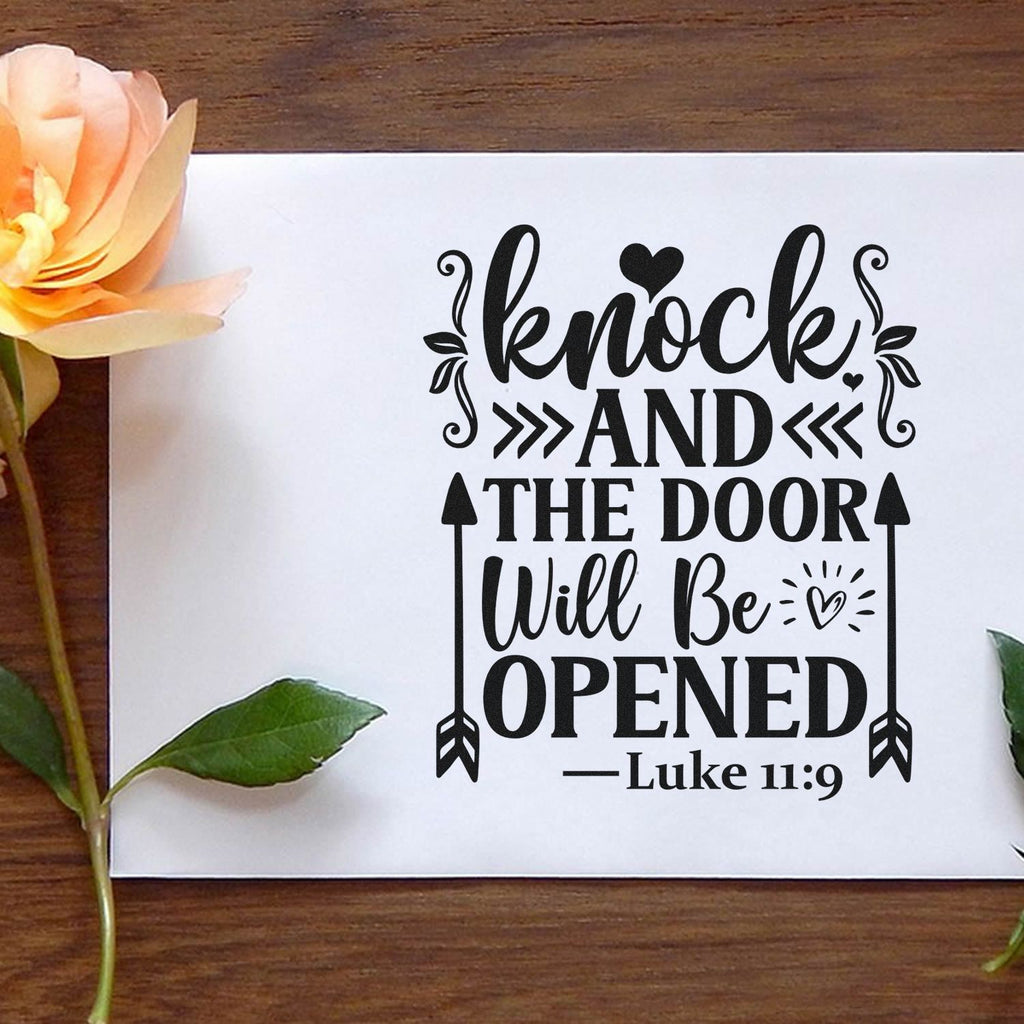 knock
AND
THE DOOR
Will Be
OPENED
—Luke 11:9